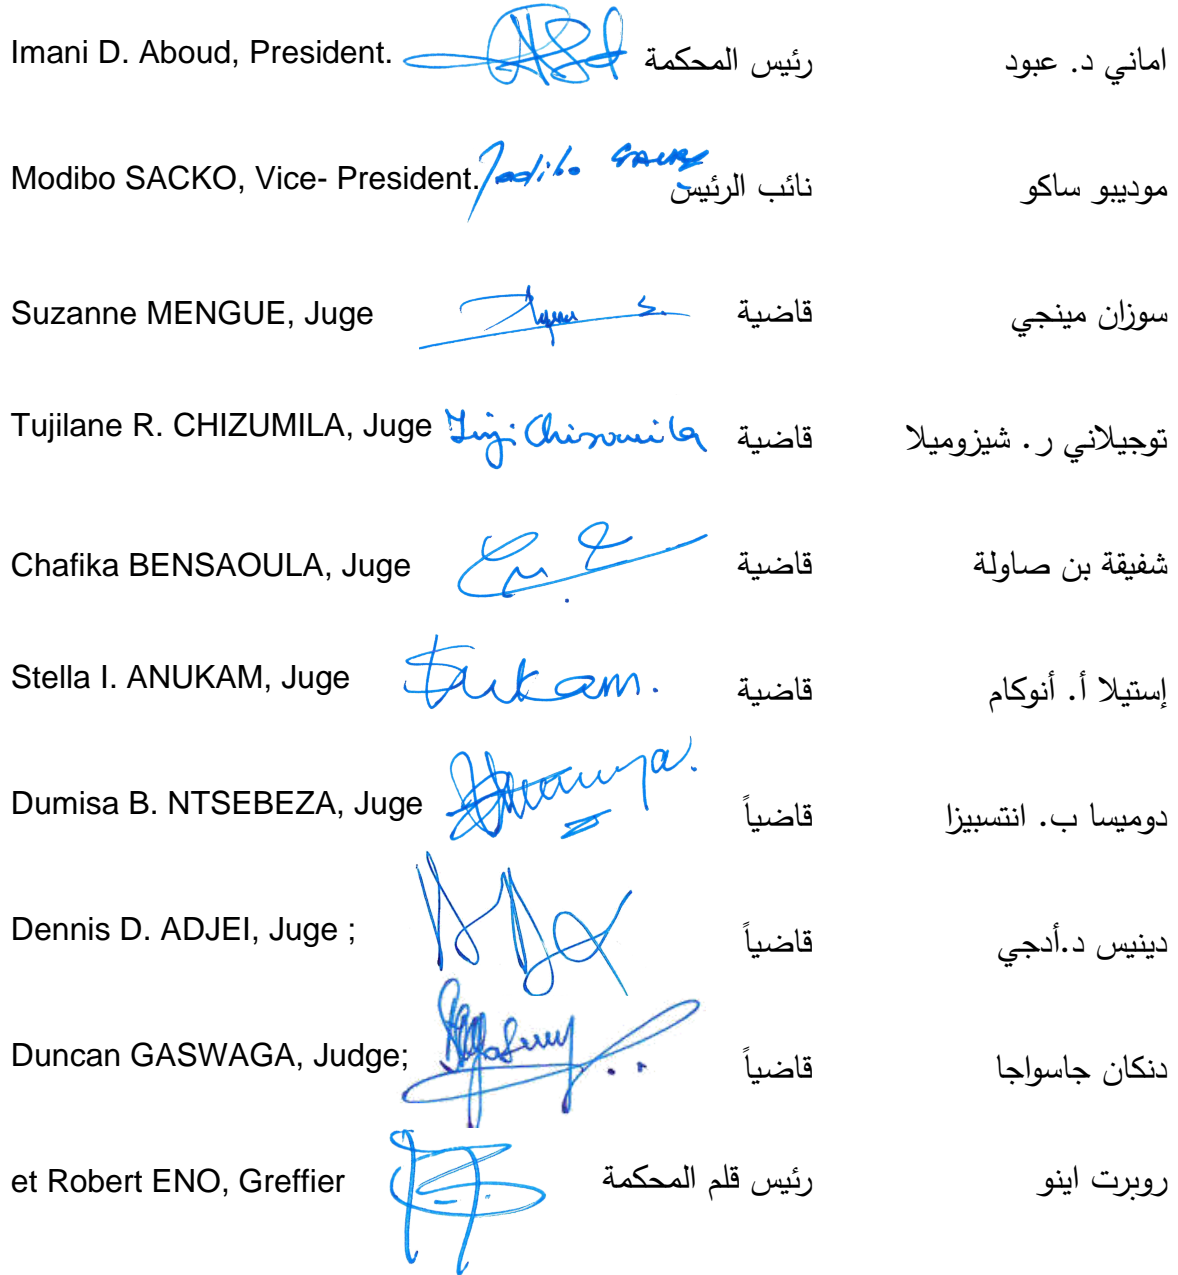 Imani D. Aboud, President. رئيس المحكمة اماني د. عبود
Modibo SACKO, Vice- President. Modibo SACKO نائب الرئيس موديبو ساكو
Suzanne MENGUE, Juge قاضية سوزان مينجي
Tujilane R. CHIZUMILA, Juge Tuji Chizumila قاضية توجيلاني ر. شيزوميلا
Chafika BENSAOULA, Juge قاضية شفيقة بن صاولة
Stella I. ANUKAM, Juge قاضية إستيلا أ. أنوكام
Dumisa B. NTSEBEZA, Juge قاضياً دوميسا ب. انتسبيزا
Dennis D. ADJEI, Juge ; قاضياً دينيس د.أدجي
Duncan GASWAGA, Judge; قاضياً دنكان جاسواجا
et Robert ENO, Greffier رئيس قلم المحكمة روبرت اينو